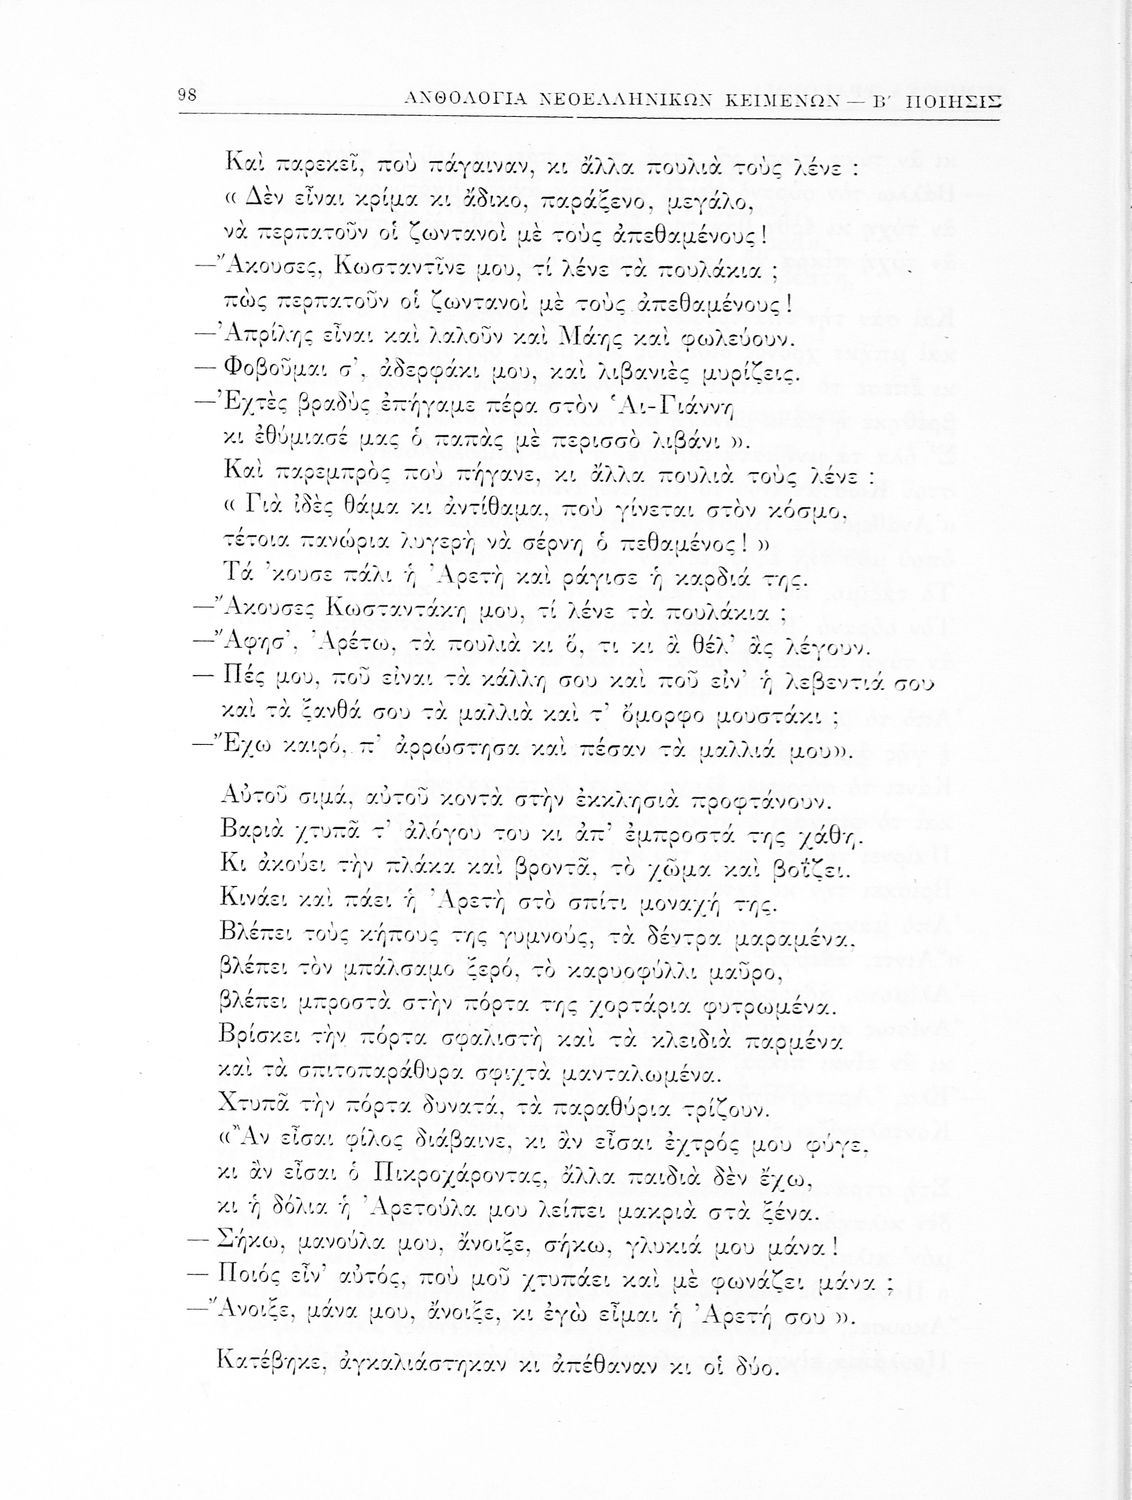 98 ΑΝΘΟΛΟΓΙΑ ΝΕΟΕΛΛΗΝΙΚΩΝ ΚΕΙΜΕΝΩΝ — Β΄ ΠΟΙΗΣΙΣ
Καὶ παρεκεῖ, ποὺ πάγαιναν, κι ἄλλα πουλιὰ τοὺς λένε :
« Δὲν εἶναι κρίμα κι ἄδικο, παράξενο, μεγάλο,
νὰ περπατοῦν οἱ ζωντανοὶ μὲ τοὺς ἀπεθαμένους !
—Ἄκουσες, Κωσταντῖνε μου, τί λένε τὰ πουλάκια ;
πὼς περπατοῦν οἱ ζωντανοὶ μὲ τοὺς ἀπεθαμένους !
—Ἀπρίλης εἶναι καὶ λαλοῦν καὶ Μάης καὶ φωλεύουν.
— Φοβοῦμαι σ’, ἀδερφάκι μου, καὶ λιβανιὲς μυρίζεις.
—Ἐχτὲς βραδὺς ἐπήγαμε πέρα στὸν Ἁι-Γιάννη
κι ἐθύμιασέ μας ὁ παπὰς μὲ περισσὸ λιβάνι ».
Καὶ παρεμπρὸς ποὺ πήγανε, κι ἄλλα πουλιὰ τοὺς λένε :
« Γιὰ ἰδὲς θάμα κι ἀντίθαμα, ποὺ γίνεται στὸν κόσμο,
τέτοια πανώρια λυγερὴ νὰ σέρνη ὁ πεθαμένος ! »
Τά ’κουσε πάλι ἡ Ἀρετὴ καὶ ράγισε ἡ καρδιά της.
—Ἄκουσες Κωσταντάκη μου, τί λένε τὰ πουλάκια ;
—Ἄφησ’, Ἀρέτω, τὰ πουλιὰ κι ὅ, τι κι ἂ θέλ’ ἂς λέγουν.
— Πές μου, ποῦ εἶναι τὰ κάλλη σου καὶ ποῦ εἶν’ ἡ λεβεντιά σου
καὶ τὰ ξανθά σου τὰ μαλλιὰ καὶ τ’ ὄμορφο μουστάκι ;
—Ἔχω καιρό, π’ ἀρρώστησα καὶ πέσαν τὰ μαλλιά μου».
Αὐτοῦ σιμά, αὐτοῦ κοντὰ στὴν ἐκκλησιὰ προφτάνουν.
Βαριὰ χτυπᾶ τ’ ἀλόγου του κι ἀπ’ ἐμπροστά της χάθη.
Κι ἀκούει τὴν πλάκα καὶ βροντᾶ, τὸ χῶμα καὶ βοΐζει.
Κινάει καὶ πάει ἡ Ἀρετὴ στὸ σπίτι μοναχή της.
Βλέπει τοὺς κήπους της γυμνούς, τὰ δέντρα μαραμένα,
βλέπει τὸν μπάλσαμο ξερό, τὸ καρυοφύλλι μαῦρο,
βλέπει μπροστὰ στὴν πόρτα της χορτάρια φυτρωμένα.
Βρίσκει τὴν πόρτα σφαλιστὴ καὶ τὰ κλειδιὰ παρμένα
καὶ τὰ σπιτοπαράθυρα σφιχτὰ μανταλωμένα.
Χτυπᾶ τὴν πόρτα δυνατά, τὰ παραθύρια τρίζουν.
«Ἂν εἶσαι φίλος διάβαινε, κι ἂν εἶσαι ἐχτρός μου φύγε,
κι ἂν εἶσαι ὁ Πικροχάροντας, ἄλλα παιδιὰ δὲν ἔχω,
κι ἡ δόλια ἡ Ἀρετούλα μου λείπει μακριὰ στὰ ξένα.
— Σήκω, μανούλα μου, ἄνοιξε, σήκω, γλυκιά μου μάνα !
— Ποιός εἶν’ αὐτός, ποὺ μοῦ χτυπάει καὶ μὲ φωνάζει μάνα ;
—Ἄνοιξε, μάνα μου, ἄνοιξε, κι ἐγὼ εἶμαι ἡ Ἀρετή σου ».
Κατέβηκε, ἀγκαλιάστηκαν κι ἀπέθαναν κι οἱ δύο.